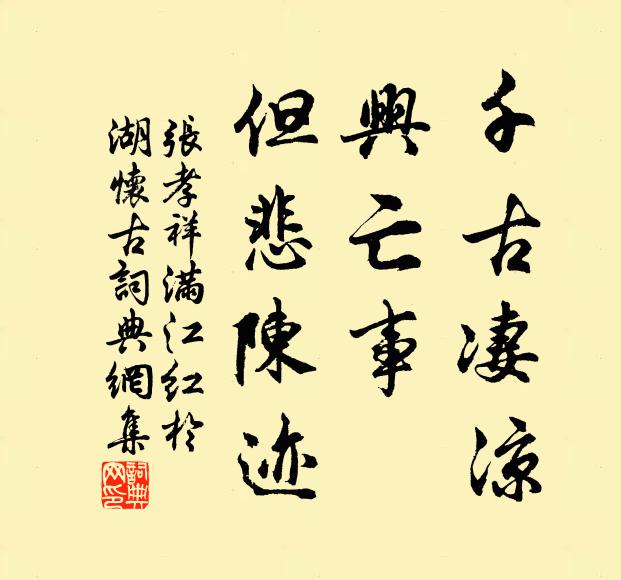 千古淒涼
興亡事
但悲陳迹
張孝祥滿江紅於
湖懷古詞典網集
詞典网印